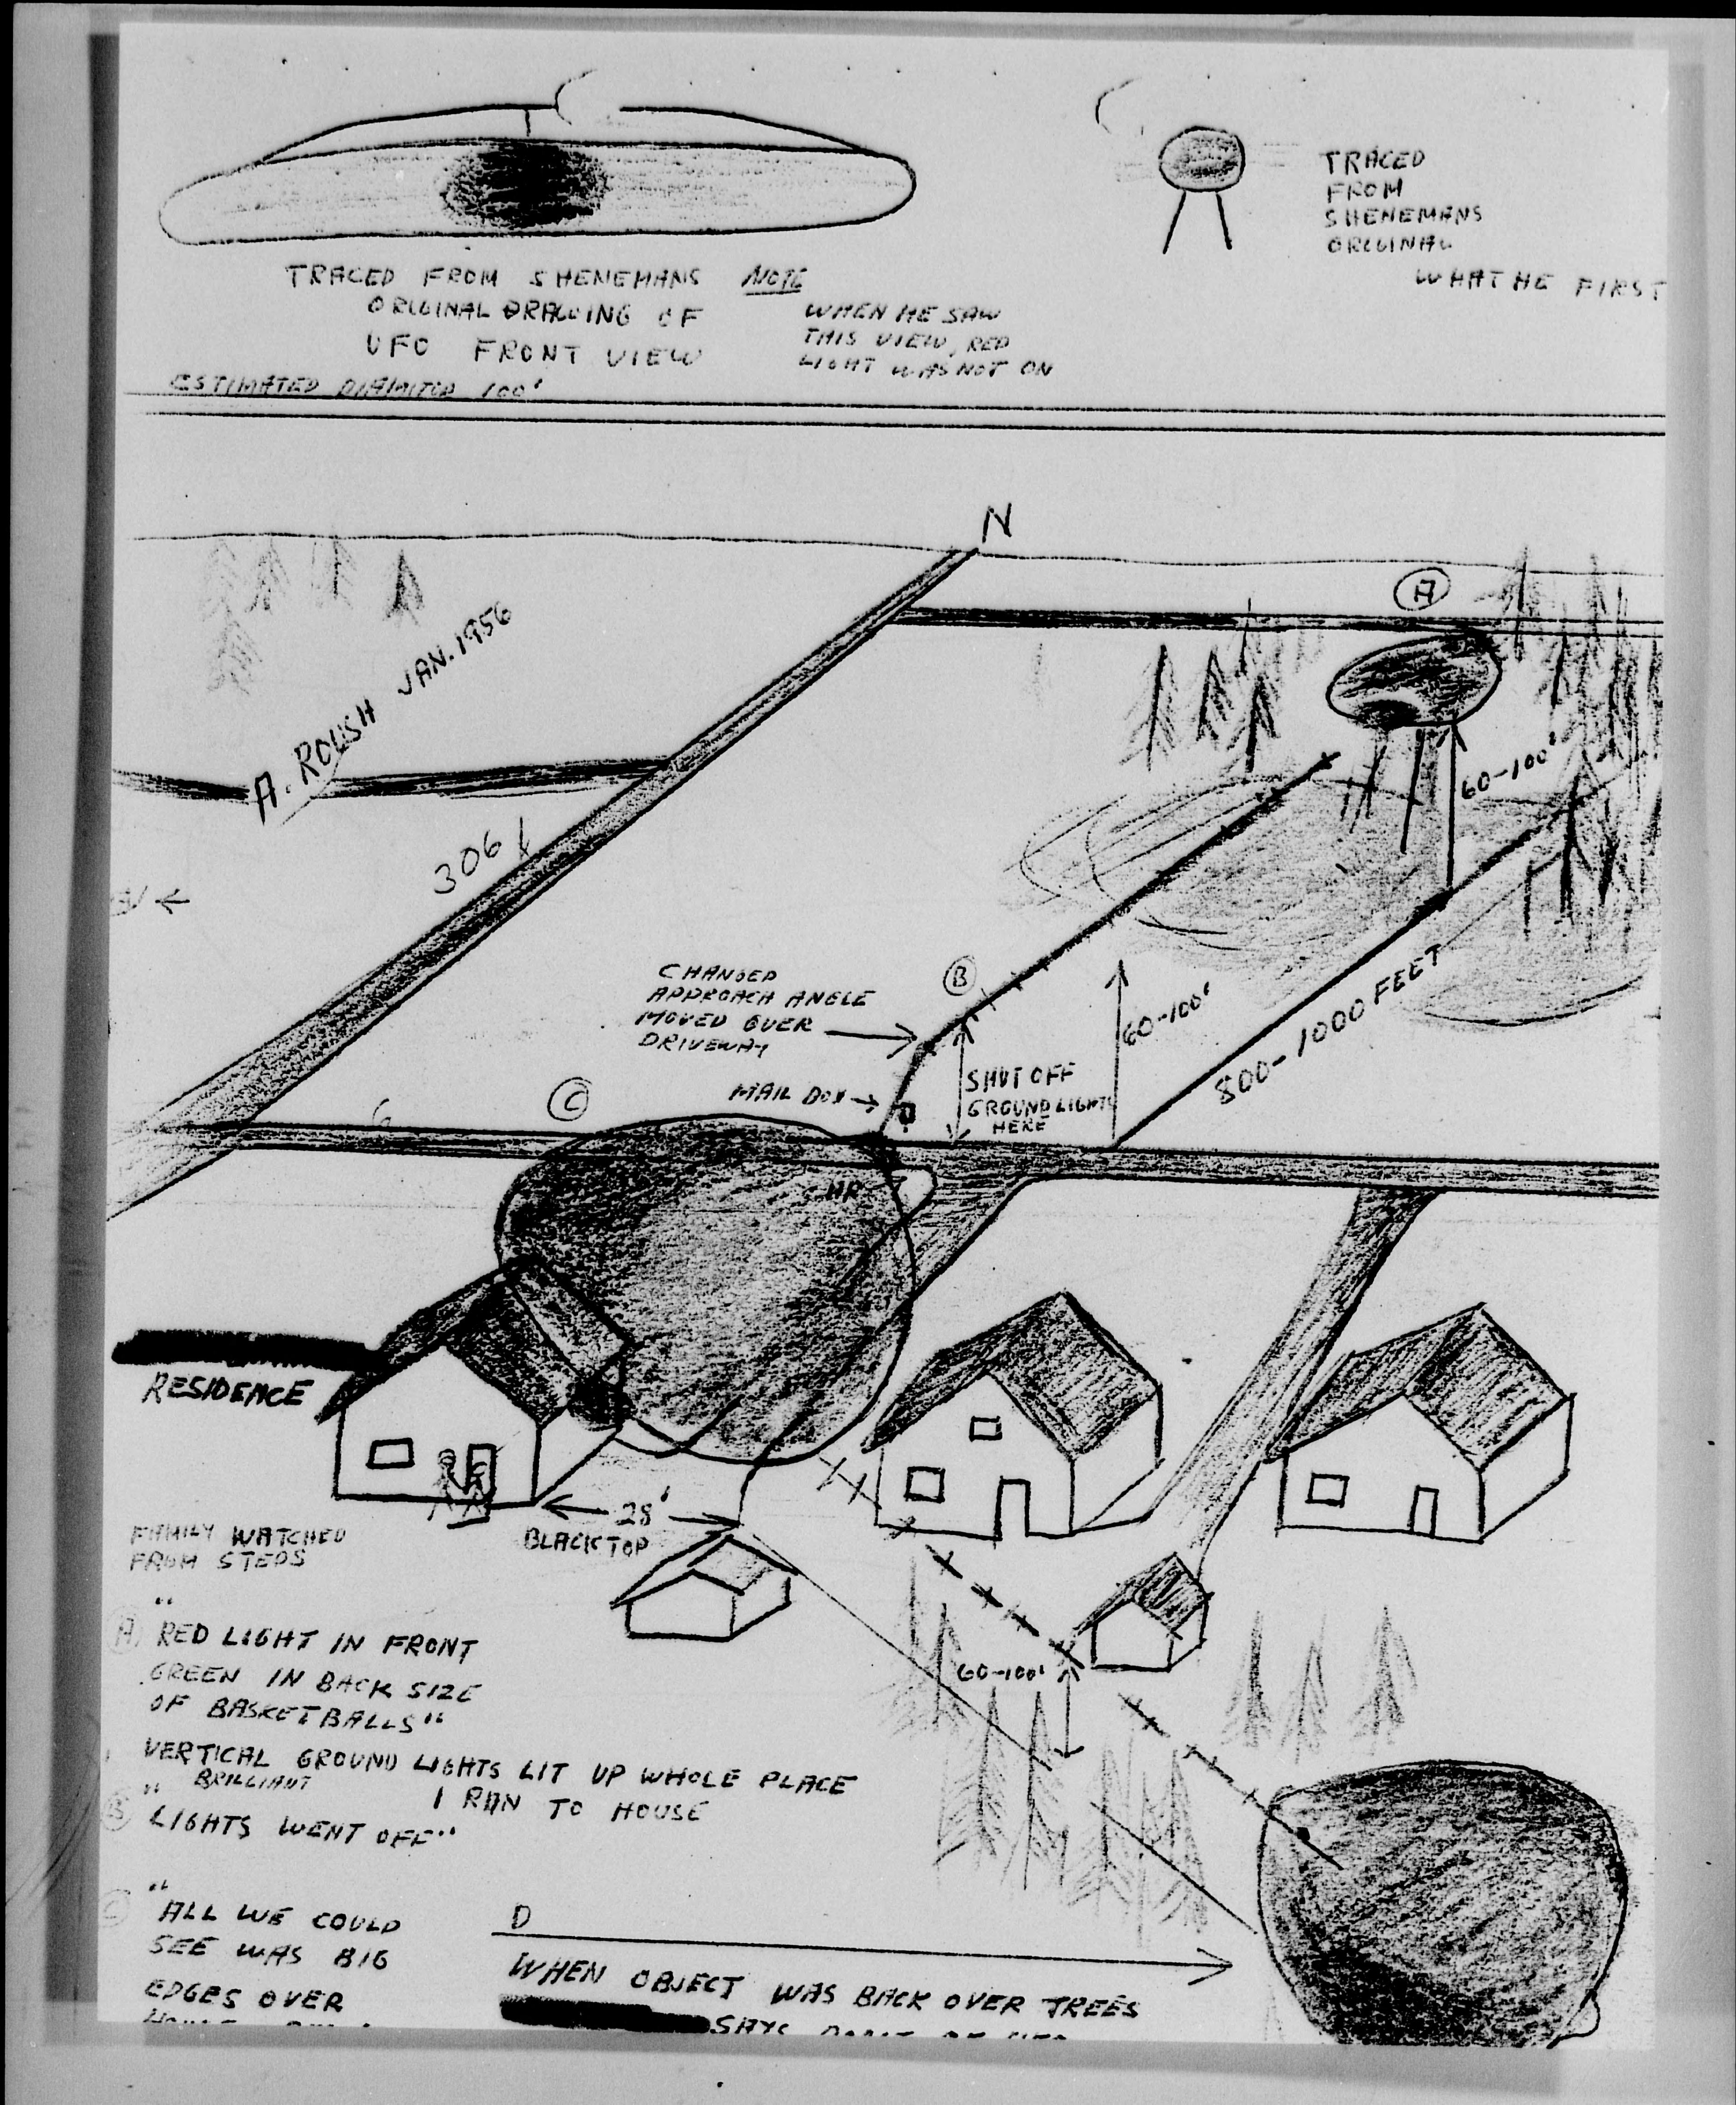 TRACED
FROM
SHENEMANS
ORIGINAL
WHAT HE FIRST
TRACED FROM SHENEMANS
ORIGINAL DRAWING OF
UFO FRONT VIEW
ESTIMATED DIAMITOR 100'
NOTE
WHEN HE SAW
THIS VIEW, RED
LIGHT WAS NOT ON
N
A
A. ROUSH JAN. 1956
306
60-100'
B
CHANGED
APPROACH ANGLE
MOVED OVER
DRIVEWAY
60-100'
800-1000 FEET
SHUT OFF
GROUND LIGHTS
HERE
MAIL BOX
C
RESIDENCE
28'
BLACKTOP
FAMILY WATCHED
FROM STEPS
60-100'
"
A RED LIGHT IN FRONT
GREEN IN BACK SIZE
OF BASKETBALLS"
VERTICAL GROUND LIGHTS LIT UP WHOLE PLACE
" BRILLIANT
I RAN TO HOUSE
B LIGHTS WENT OFF"
"
C ALL WE COULD
SEE WAS BIG
EDGES OVER
D
WHEN OBJECT WAS BACK OVER TREES
SAYS